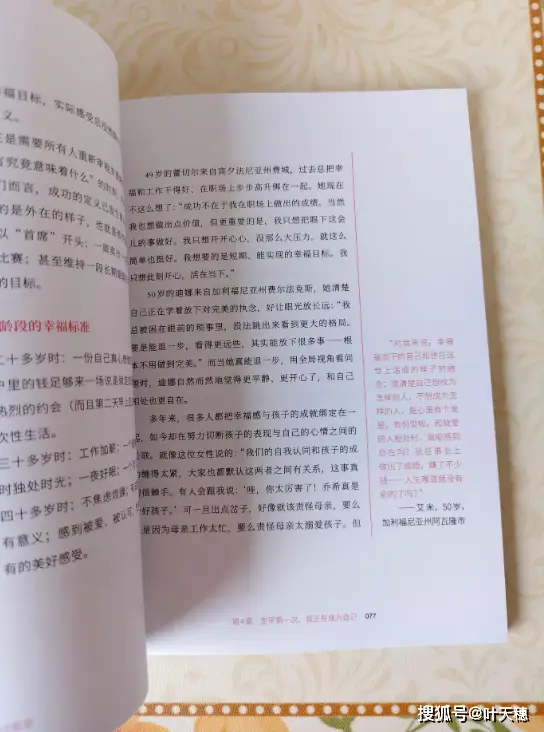 福目标，实际感受
义。
正是需要所有人重新
究竟意味着什么”的时
们而言，成功的定义已
的是外在的样子，
以“首席”开头；一周
比赛；甚至维持一段长期
的目标。
龄段的幸福标准
二十多岁时：一份自己真心
中里的钱足够来一场说走就
热烈的约会（而且第二天早上
次性生活。
三十多岁时：工作加薪；一个
时独处时光；一夜好眠；一个
四十多岁时：不焦虑烦躁；
有意义；感到被爱、被认可、
有的美好感受。
49岁的蕾切尔来自宾夕法尼亚州费城，过去总把幸
福和工作干得好、在职场上步步高升绑在一起。她现在
不这么想了：“成功不在于我在职场上做出的成绩。当然
我也想做出点价值，但更重要的是，我只想把眼下这会
儿的事做好。我只想开开心心、没那么大压力。就这么
简单也挺好。我想要的是短期、能实现的幸福目标。我
只想此刻开心，活在当下。”
50岁的迪娜来自加利福尼亚州费尔法克斯，她清楚
自己正在学着放下对完美的执念，好让眼光放长远：“我
总被困在眼前的琐事里，没法跳出来看到更大的格局。
要是能退一步，看得更远些，其实能放下很多事——根
本不用做到完美。”而当她真能退一步，用全局视角看问
时，迪娜自然而然地觉得更平静，更开心了，和自己
相处也更自在。
多年来，很多人都把幸福感与孩子的成就绑定在一
，如今却在努力切断孩子的表现与自己的心情之间的
联。就像这位女性说的：“我们的自我认同和孩子的成
缠得太紧，大家也都默认这两者之间有关系，这事真
很棘手。有人会跟我说：‘哇，你太厉害了！乔希真是
好孩子。’可一旦出点岔子，好像就该责怪母亲，要么
是因为母亲工作太忙，要么责怪母亲太溺爱孩子。但
“对我来说，幸福
是当下的自己和想在这
世上活成的样子的融
合；理清楚自己想成为
怎样的人，不想成为怎
样的人，是心里有个底
——艾米，50岁，
加利福尼亚州阿瓦隆市
第4章 生平第一次，我正在成为自己 077
搜狐号@叶天穗